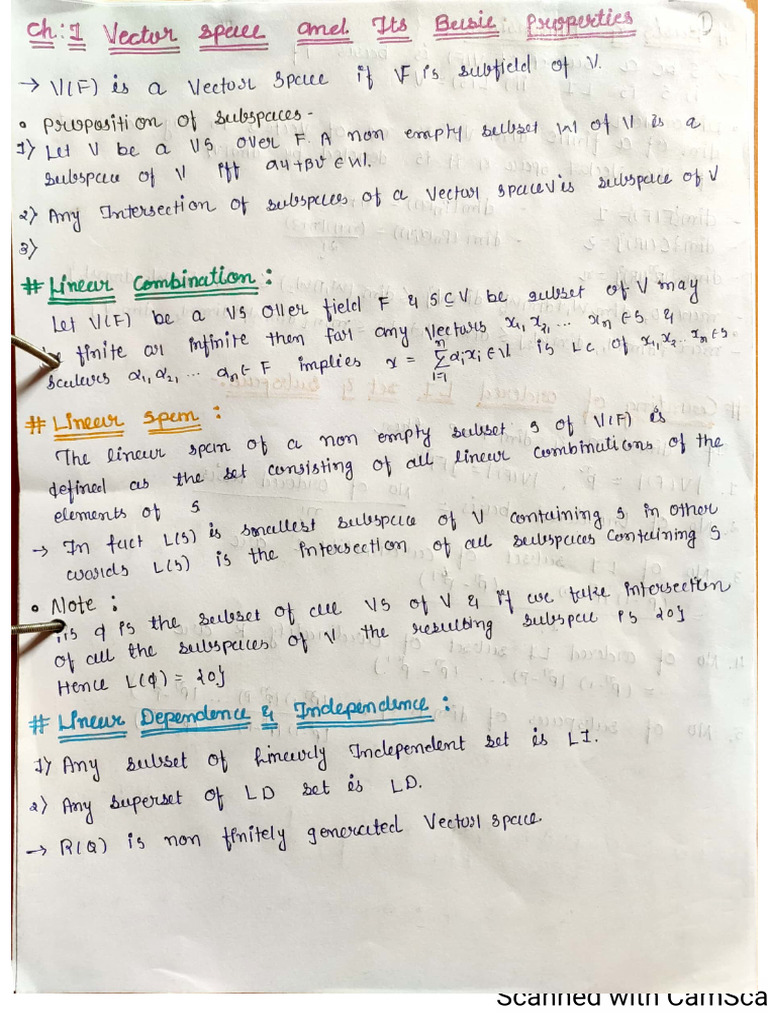 Ch:1 Vector space and Its Basic Properties
①
→ V(F) is a Vector Space if F is subfield of V.
• Proposition of subspaces -
1) Let V be a VS over F. A non empty subset W of V is a
subspace of V iff αu+βv ∈ W.
2) Any Intersection of subspaces of a Vector space V is subspace of V
3)
# Linear Combination :
Let V(F) be a VS over field F & S⊆V be subset of V may
be finite or infinite then for any Vectors x₁, x₂, ... xₙ ∈ S &
scalars α₁, α₂, ... αₙ ∈ F implies x = ∑ⁿᵢ₌₁ αᵢxᵢ ∈ V is LC of x₁, x₂... xₙ ∈ S.
# Linear Span :
The linear span of a non empty subset S of V(F) is
defined as the set consisting of all linear combinations of the
elements of S
→ In fact L(S) is smallest subspace of V containing S in other
words L(S) is the intersection of all subspaces containing S
• Note :
As φ is the subset of all VS of V & if we take intersection
of all the subspaces of V the resulting subspace is {0}
Hence L(φ) = {0}
# Linear Dependence & Independence :
1) Any subset of Linearly Independent set is LI.
2) Any superset of LD set is LD.
→ R(Q) is non finitely generated Vector space.
Scanned with CamSca